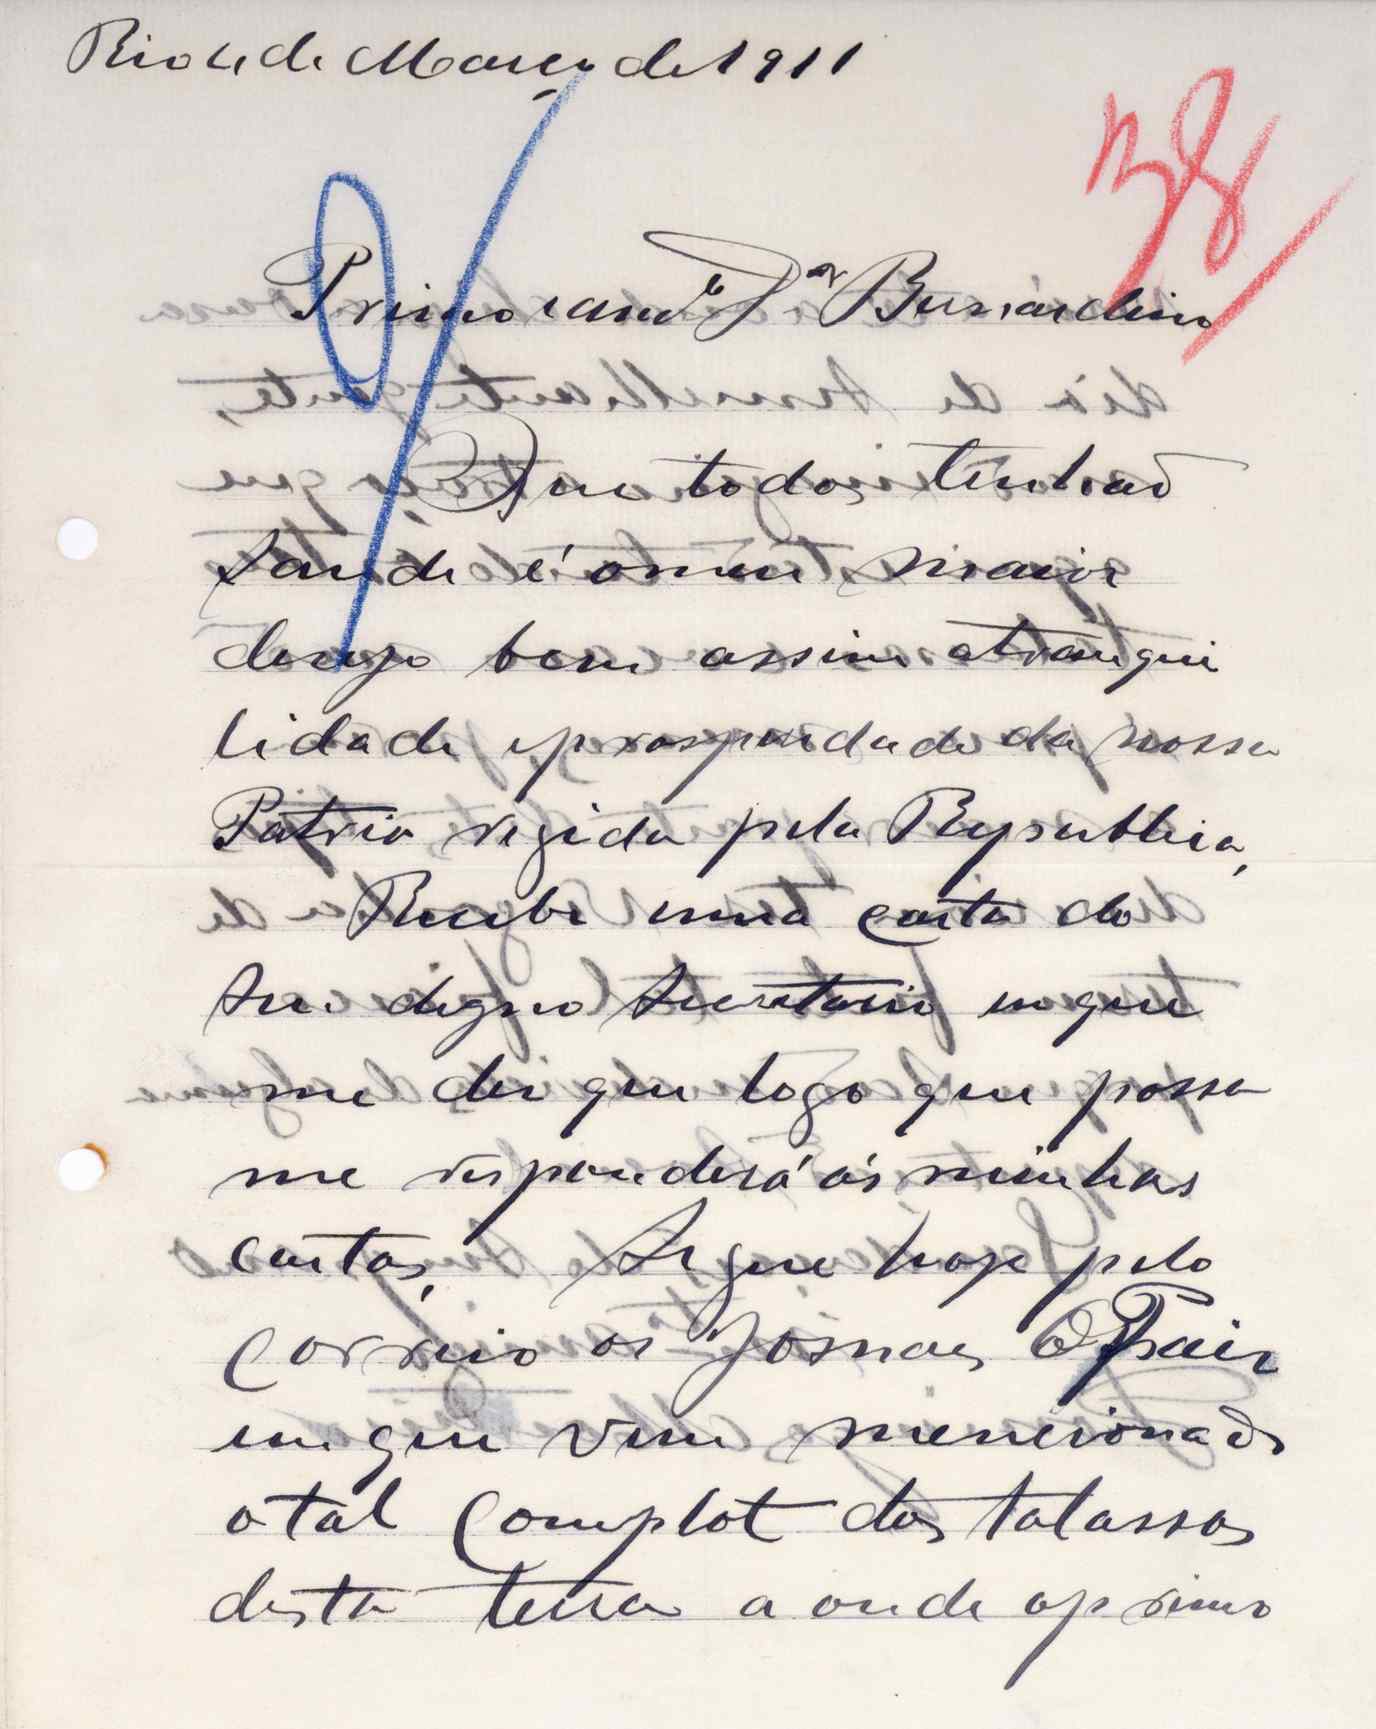 Rio 4 de Março de 1911
38
Primo e amo Dor Bernardino
Que todos tenhão
saude é o meu maior
desejo bem assim a tranqui
lidade e prosperidade da nossa
Patria regida pela Republica,
Recebi uma carta do
seu digno Secretario em que
me diz que logo que possa
me responderá ás minhas
cartas, Segue hoje pelo
correio os Jornaes O Paiz
em que vem mencionado
o tal Complot dos talassas
desta terra a onde o primo